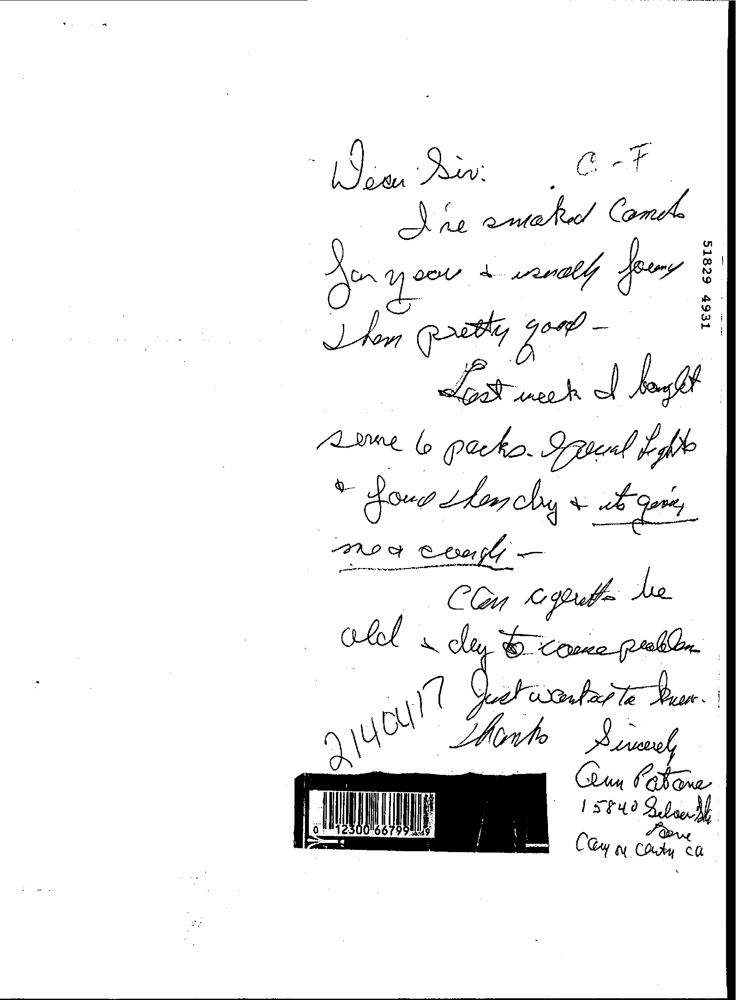 Dear Sir: C-F
I've smoked Camels
for years & usually found
them pretty good -
Last week I bought
some 6 packs. Special Lights
& found them dry & its giving
me a cough -
Can cigarettes be
old & dry to cause problem
Just wanted to know.
2140417
Thanks Sincerely
Ann Patane
15840
Lane
Canyon Country CA
0 12300 66799 9
51829 4931